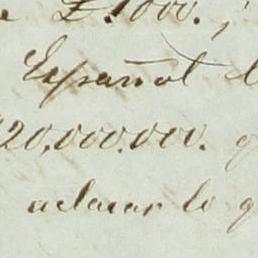 £.1000.;
Español
20,000.000.
aclarar lo q